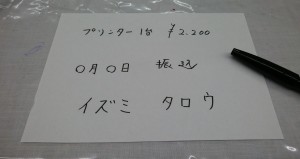 プリンター1台 ¥2.200
〇月〇日 振込
イズミ タロウ